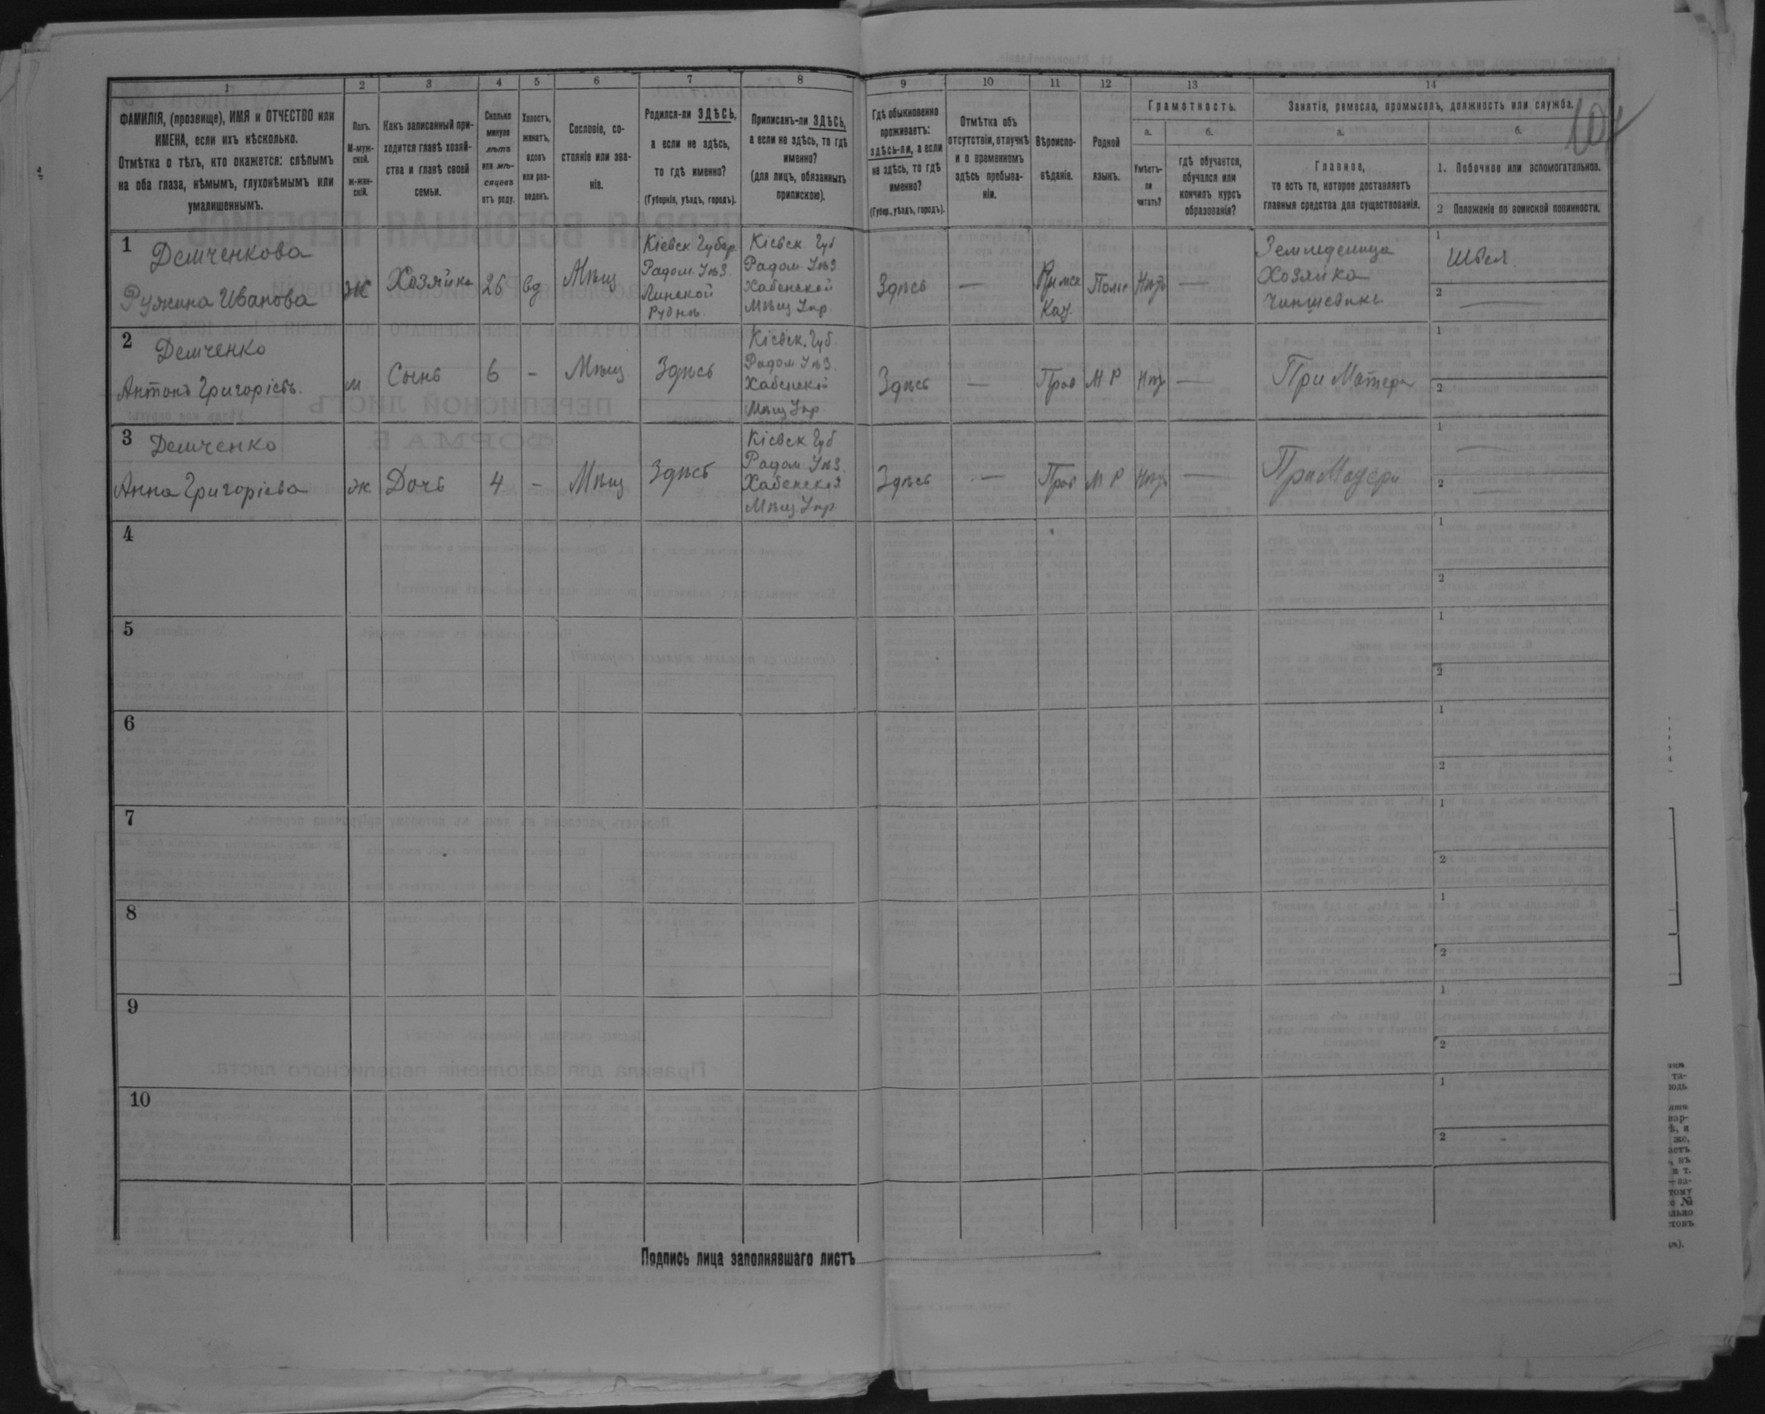 1 2 3 4 5 6 7 8 9 10 11 12 13 14
ФАМИЛІЯ, (прозвище), ИМЯ и ОТЧЕСТВО или
ИМЕНА, если ихъ нѣсколько.
Отмѣтка о тѣхъ, кто окажется: слѣпымъ
на оба глаза, нѣмымъ, глухонѣмымъ или
умалишеннымъ.
Полъ.
М-муж-
ской.
ж-жен-
скій.
Какъ записанный при-
ходится главѣ хозяй-
ства и главѣ своей
семьи.
Сколько
минуло
лѣтъ
или мѣ-
сяцевъ
отъ роду.
Холостъ,
женатъ,
вдовъ
или раз-
веденъ.
Сословіе, со-
стояніе или зва-
ніе.
Родился-ли ЗДѢСЬ,
а если не здѣсь,
то гдѣ именно?
(Губернія, уѣздъ, городъ).
Приписанъ-ли ЗДѢСЬ,
а если не здѣсь, то гдѣ
именно?
(для лицъ, обязанныхъ
припискою).
Гдѣ обыкновенно
проживаетъ:
здѣсь-ли, а если
не здѣсь, то гдѣ
именно?
(Губер., уѣздъ, городъ).
Отмѣтка объ
отсутствіи, отлучкѣ
и о временномъ
здѣсь пребыва-
ніи.
Вѣроиспо-
вѣданіе.
Родной
языкъ.
Грамотность.
а.
Умѣетъ-
ли
читать?
б.
гдѣ обучается,
обучался или
кончилъ курсъ
образованія?
Занятіе, ремесло, промыселъ, должность или служба.
а.
Главное,
то есть то, которое доставляетъ
главныя средства для существованія.
б.
1. Побочное или вспомогательное.
2 Положеніе по воинской повинности.
1 Демченкова
Ружина Иванова
Ж
Хозяйка
26
вд
Мѣщ
Кіевск Губер
Радом. Уѣз.
Рудня
Кіевск. Губ
Радом. Уѣз
Хабенской
Мѣщ Упр.
Здѣсь
—
Римск
Кат.
Польс
Нѣтъ
—
Хозяйка
1 Швея.
2 —
2 Демченко
Антонъ Григоріевъ.
м
Сынъ
6
-
Мѣщ.
Здѣсь
Кіевск. Губ.
Радом Уѣз.
Хабенской
Мѣщ Упр
Здѣсь
—
Прав
М Р
Нѣтъ
—
При Матери
1
2
3 Демченко
Анна Григоріева
ж.
Дочь
4
-
Мѣщ
Здѣсь
Кіевск Губ
Радом. Уѣз.
Хабенской
Мѣщ Упр
Здѣсь
—
Прав
М Р
Нѣтъ
—
При Матери
1 —
2 —
4
1
2
5
1
2
6
1
2
7
1
2
8
1
2
9
1
2
10
1
2
Подпись лица заполнявшаго листъ